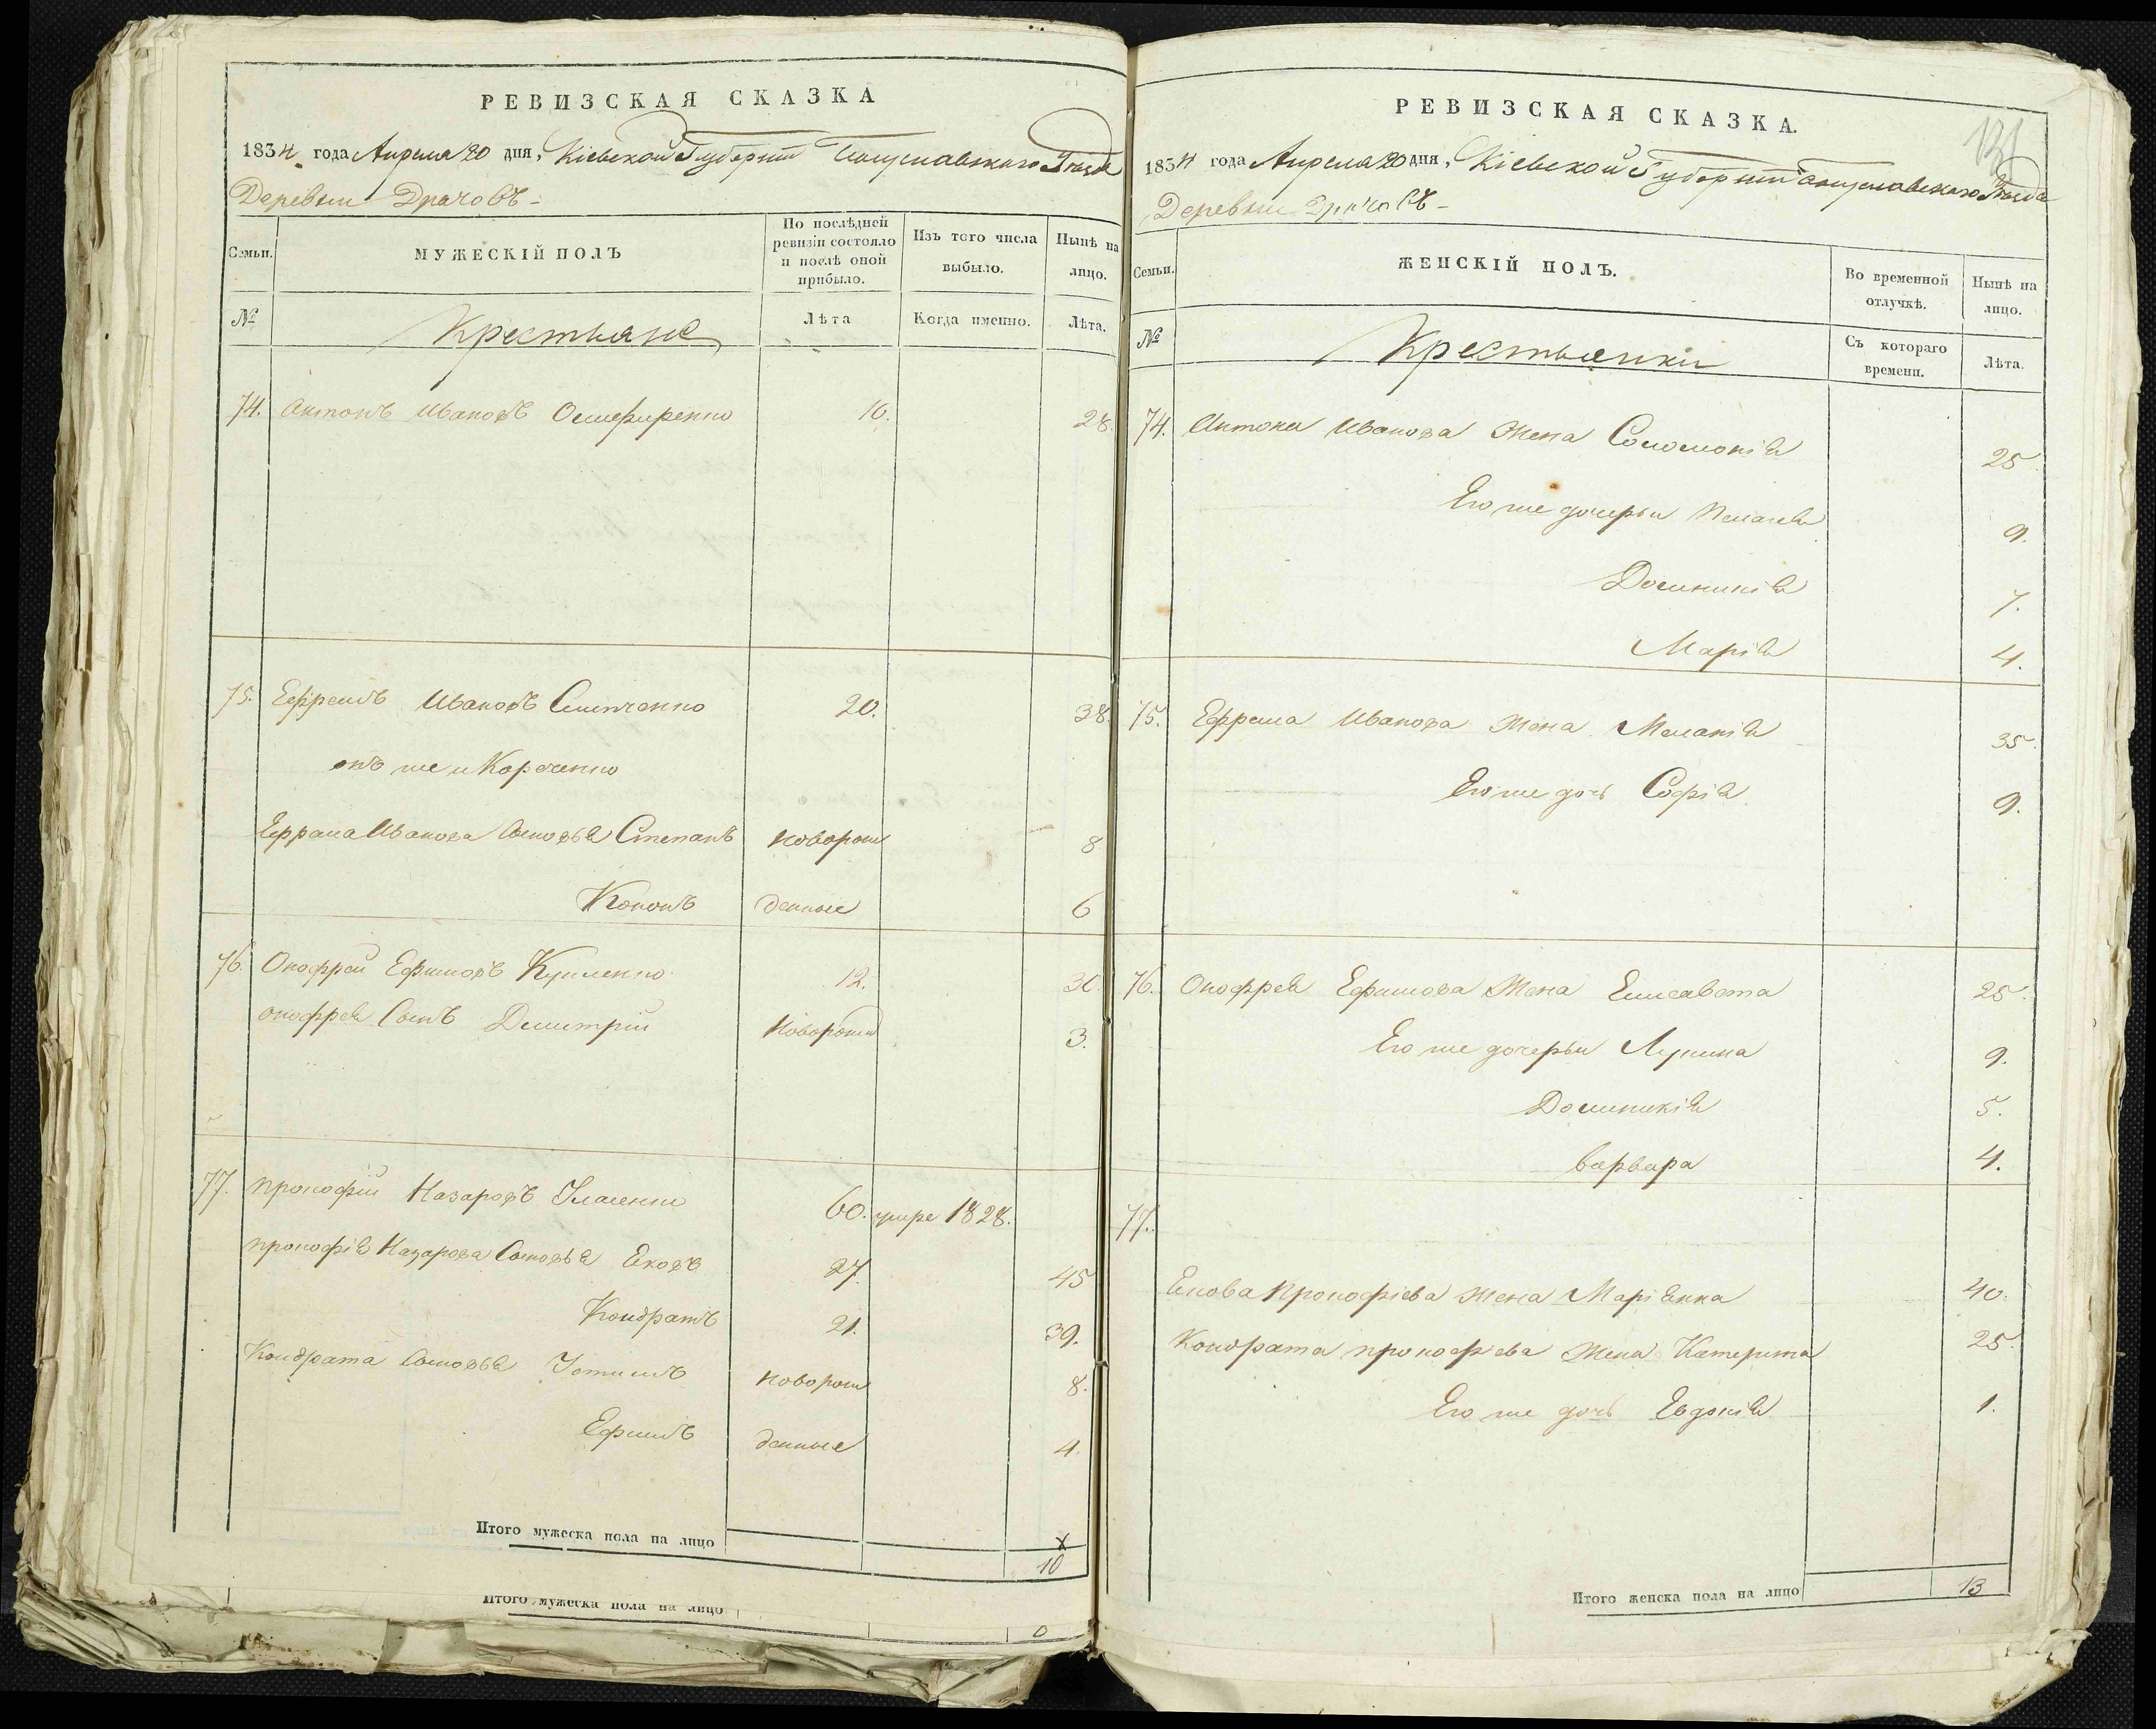 РЕВИЗСКАЯ СКАЗКА
1834 года Апреля 20 дня, Кіевской Губерніи Богуславскаго Уѣзда
Деревни Драчовъ
Семьи.
МУЖЕСКІЙ ПОЛЪ
По послѣдней ревизіи состояло и послѣ оной прибыло.
Изъ того числа выбыло.
Нынѣ на лицо.
№
Крестьяне
Лѣта
Когда именно.
Лѣта.
74. Антонъ Ивановъ 10. 28.
75. Ефремъ Ивановъ 20. 38.
онъ же и
Ефрема Иванова Сыновья Степанъ новорож 8
Кононъ денные 6
76. Онофрей Ефимовъ 12. 30.
Онофрея Сынъ Дмитрій новорожд 3.
77. Прокофій Назаровъ 60. умре 1828.
Прокофія Назарова Сыновья Яковъ 27. 45
Кондратъ 21. 39.
Кондрата Сыновья новорож 8.
Ефимъ денные 4.
Итого мужеска пола на лицо
х
10
Итого мужеска пола на лицо
0
РЕВИЗСКАЯ СКАЗКА.
131
1834 года Апреля 20 дня, Кіевской Губерніи Богуславскаго Уѣзда
Деревни Драчовъ
Семьи.
ЖЕНСКІЙ ПОЛЪ.
Во временной отлучкѣ.
Нынѣ на лицо.
№
Крестьянки
Съ котораго времени.
Лѣта.
74. Антона Иванова Жена Соломонія 25
Его же дочери Пелагея 9.
Доминикія 7.
Марія 4.
75. Ефрема Иванова Жена Меланія 35.
Его же дочь Софія 9.
76. Онофрея Ефимова Жена Елисавета 25.
Его же дочери 9.
Доминикія 5.
Варвара 4.
77.
Якова Прокофіева Жена Маріянна 40.
Кондрата Прокофіева Жена Катерина 25.
Его же дочь Евдокія 1.
Итого женска пола на лицо 13